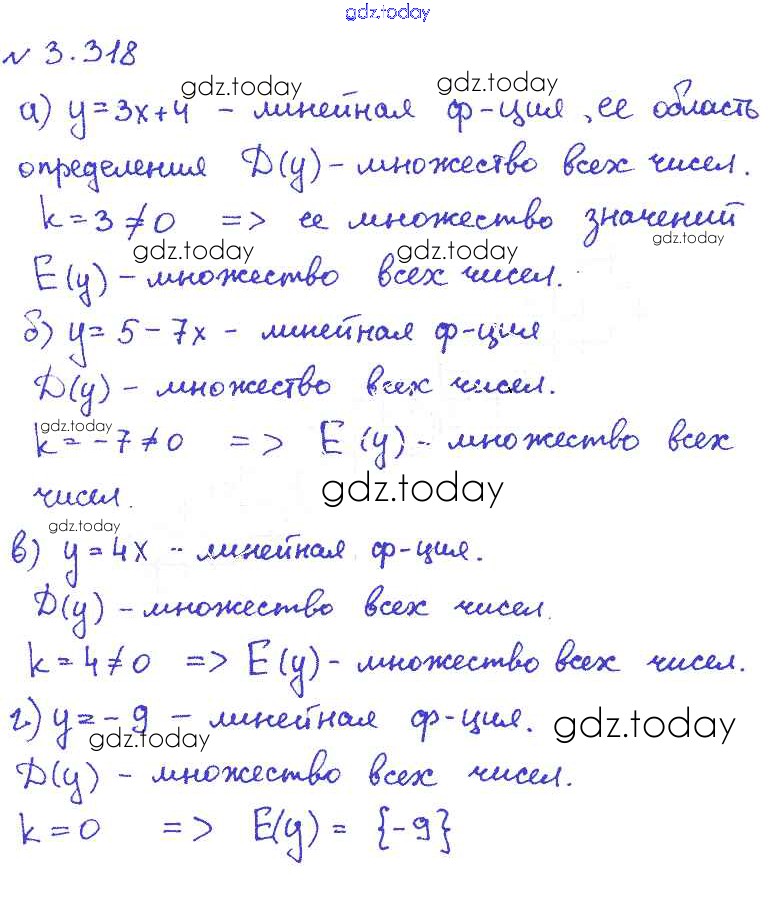 gdz.today
№ 3.318
gdz.today gdz.today
а) y=3x+4 - линейная ф-ция, ее область
определения D(y) - множество всех чисел.
k=3≠0 => ее множество значений
gdz.today gdz.today gdz.today
E(y) - множество всех чисел.
б) y= 5-7x - линейная ф-ция
D(y) - множество всех чисел.
gdz.today
k=-7≠0 => E(y) - множество всех
чисел.
gdz.today
gdz.today
в) y=4x - линейная ф-ция.
D(y) - множество всех чисел.
k=4≠0 => E(y) - множество всех чисел.
г) y=-9 - линейная ф-ция.
gdz.today gdz.today
D(y) - множество всех чисел.
k=0 => E(y) = {-9}